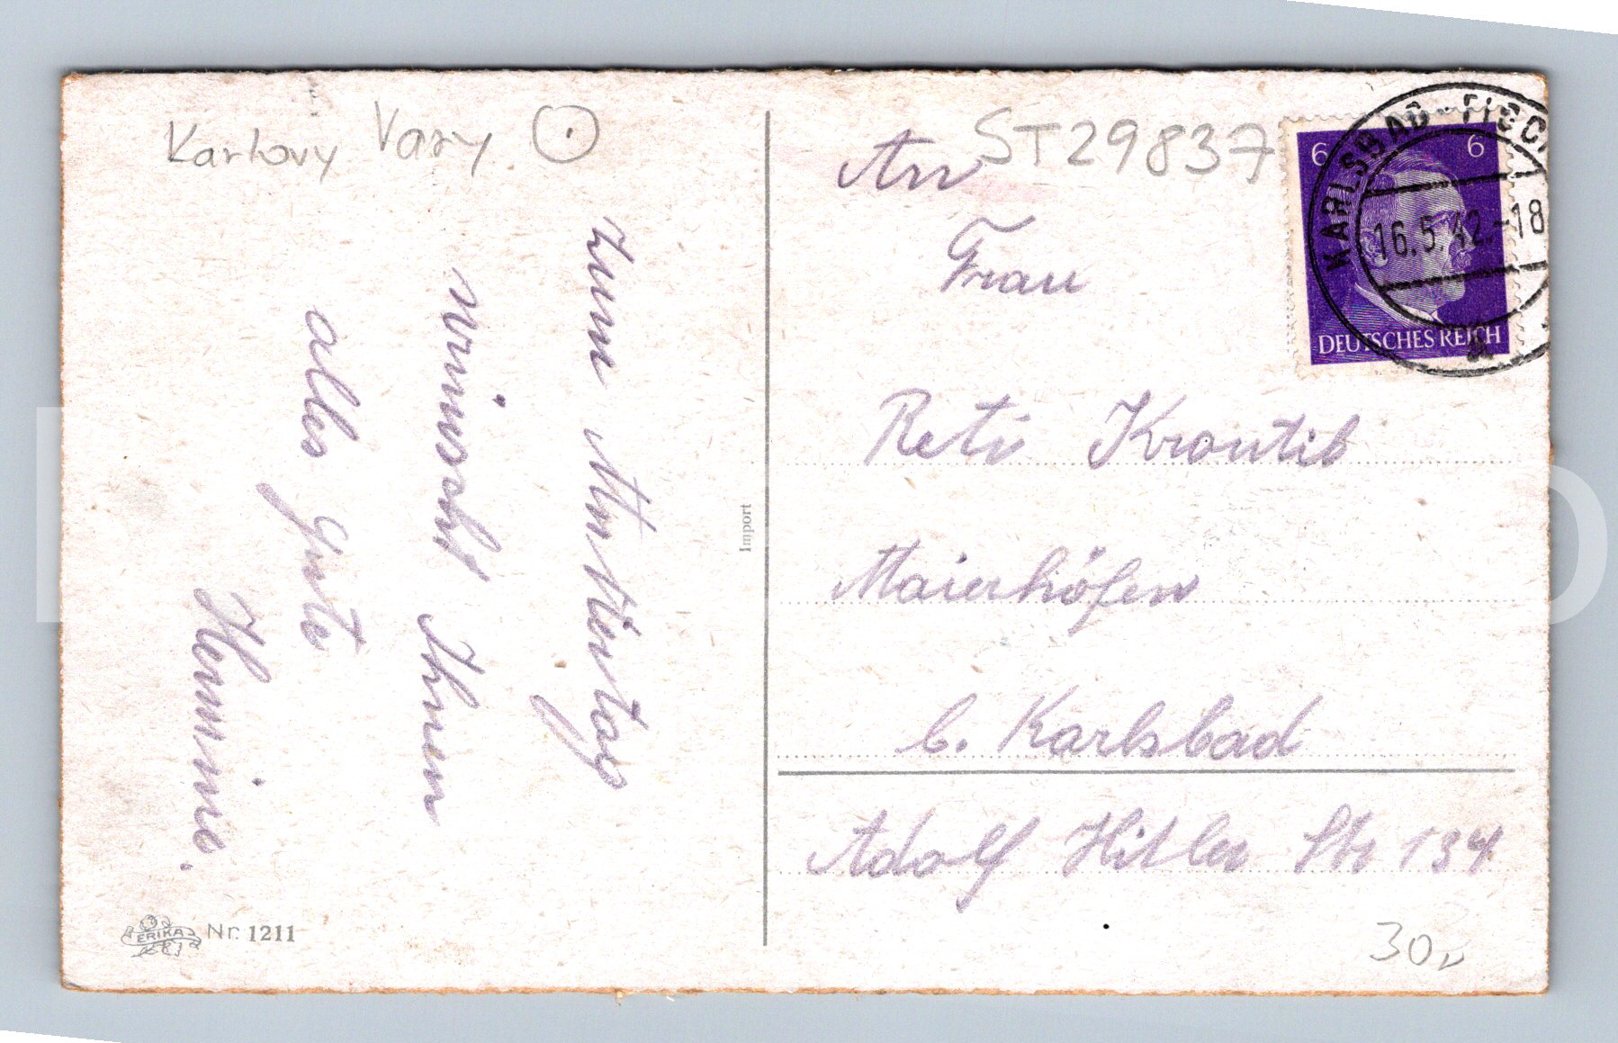 Karlovy Vary
Zum Muttertag
wünscht Ihnen
alles gute
Hermine.
ERIKA Nr. 1211
Import
ST29837
An
Frau
Reti Kroutil
Maierhöfen
b. Karlsbad
Adolf Hitler Str 134
30,-
6 6
DEUTSCHES REICH
KARLSBAD-FISCH
16.5.42.-18
a